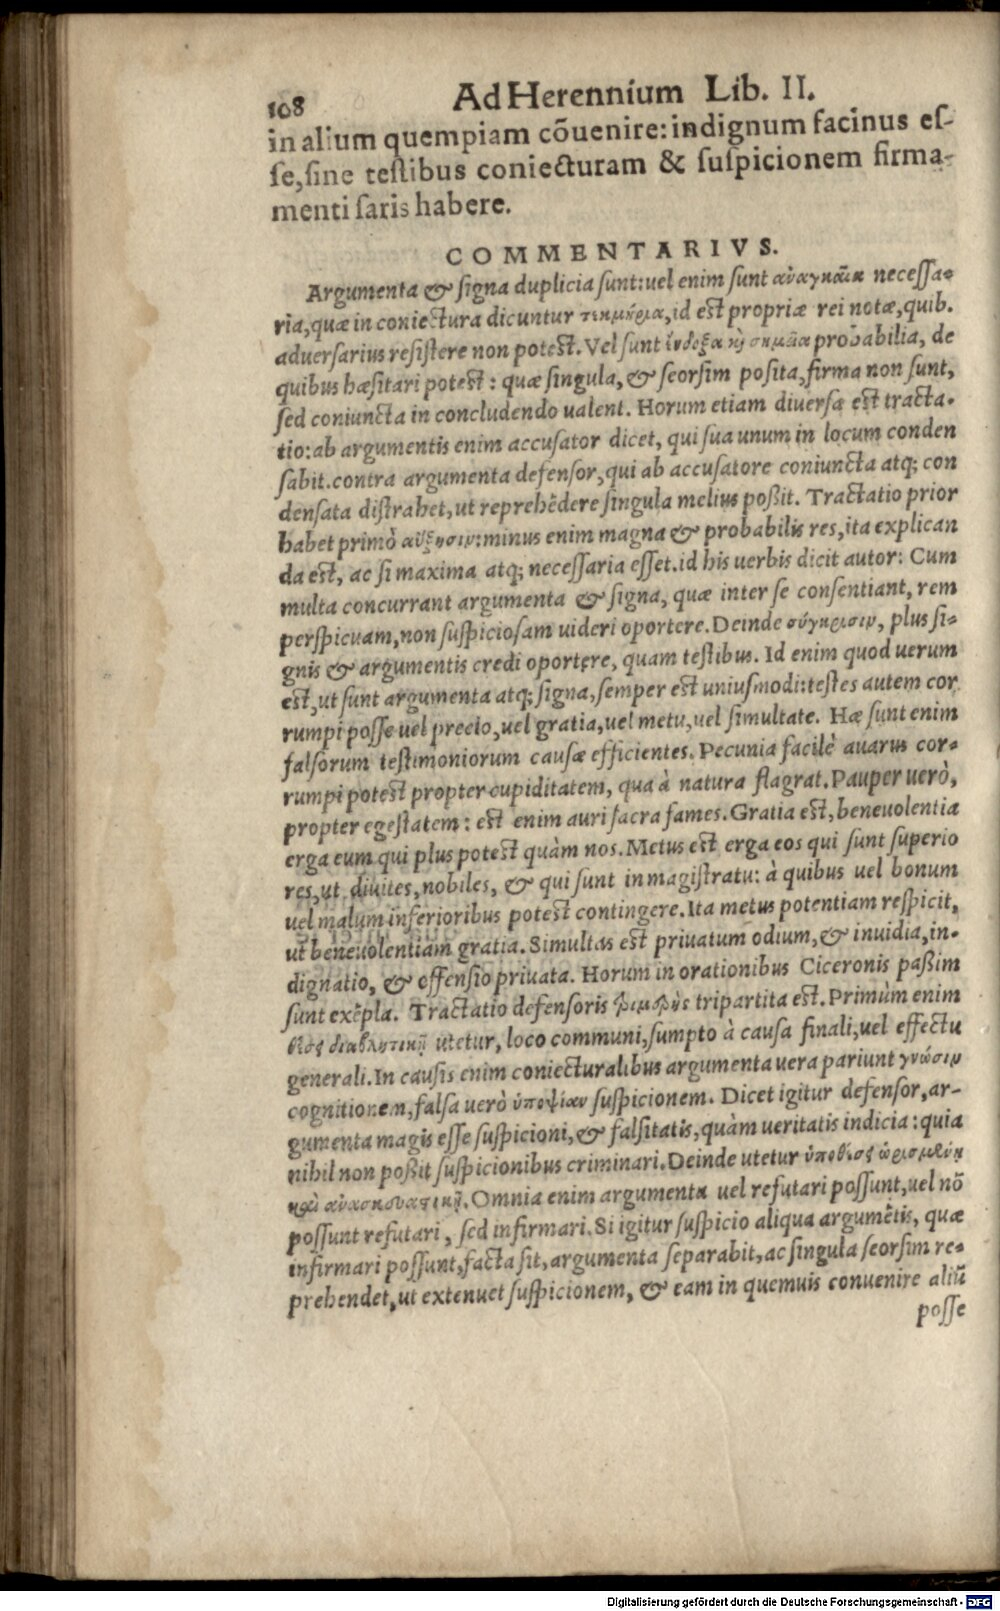 108
Ad Herennium Lib. II.
in alium quempiam cōuenire: indignum facinus eſ-
ſe, ſine teſtibus coniecturam & ſuſpicionem firma-
menti ſatis habere.
COMMENTARIVS.
Argumenta & ſigna duplicia ſunt: uel enim ſunt ἀναγκαῖα neceſſa-
ria, quæ in coniectura dicuntur τεκμήρια, id eſt propriæ rei notæ, quib.
aduerſarius reſiſtere non poteſt. Vel ſunt ἔνδοξα καὶ σημεῖα probabilia, de
quibus hæſitari poteſt: quæ ſingula, & ſeorſim poſita, firma non ſunt,
ſed coniuncta in concludendo ualent. Horum etiam diuerſa eſt tracta-
tio: ab argumentis enim accuſator dicet, qui ſua unum in locum conden
ſabit. contra argumenta defenſor, qui ab accuſatore coniuncta atq; con
denſata diſtrahet, ut reprehēdere ſingula melius poßit. Tractatio prior
habet primò αὔξησιν: minus enim magna & probabilis res, ita explican
da eſt, ac ſi maxima atq; neceſſaria eſſet. id his uerbis dicit autor: Cum
multa concurrant argumenta & ſigna, quæ inter ſe conſentiant, rem
perſpicuam, non ſuſpicioſam uideri oportere. Deinde σύγκρισιν, plus ſi-
gnis & argumentis credi oportere, quam teſtibus. Id enim quod uerum
eſt, ut ſunt argumenta atq; ſigna, ſemper eſt uniuſmodi: teſtes autem cor
rumpi poſſe uel precio, uel gratia, uel metu, uel ſimultate. Hæ ſunt enim
falſorum teſtimoniorum cauſæ efficientes. Pecunia facilè auarus cor-
rumpi poteſt propter cupiditatem, qua à natura flagrat. Pauper uerò,
propter egeſtatem: eſt enim auri ſacra fames. Gratia eſt, beneuolentia
erga eum qui plus poteſt quàm nos. Metus eſt erga eos qui ſunt ſuperio
res, ut diuites, nobiles, & qui ſunt in magiſtratu: à quibus uel bonum
uel malum inferioribus poteſt contingere. Ita metus potentiam reſpicit,
ut beneuolentiam gratia. Simultas eſt priuatum odium, & inuidia, in-
dignatio, & offenſio priuata. Horum in orationibus Ciceronis paßim
ſunt exēpla. Tractatio defenſoris τριμερὴς tripartita eſt. Primùm enim
θέσς διαβλητικῇ utetur, loco communi, ſumpto à cauſa finali, uel effectu
generali. In cauſis enim coniecturalibus argumenta uera pariunt γνώσιν
cognitionem, falſa uerò ὑποψίαν ſuſpicionem. Dicet igitur defenſor, ar-
gumenta magis eſſe ſuſpicioni, & falſitatis, quàm ueritatis indicia: quia
nihil non poßit ſuſpicionibus criminari. Deinde utetur ὑποθέσς ὡρισμένῃ
καὶ ἀνασκευαστικῇ. Omnia enim argumenta uel refutari poſſunt, uel nō
poſſunt refutari, ſed infirmari. Si igitur ſuſpicio aliqua argumētis, quæ
infirmari poſſunt, facta ſit, argumenta ſeparabit, ac ſingula ſeorſim re-
prehendet, ut extenuet ſuſpicionem, & eam in quemuis conuenire aliū
poſſe
Digitalisierung gefördert durch die Deutsche Forschungsgemeinschaft - DFG